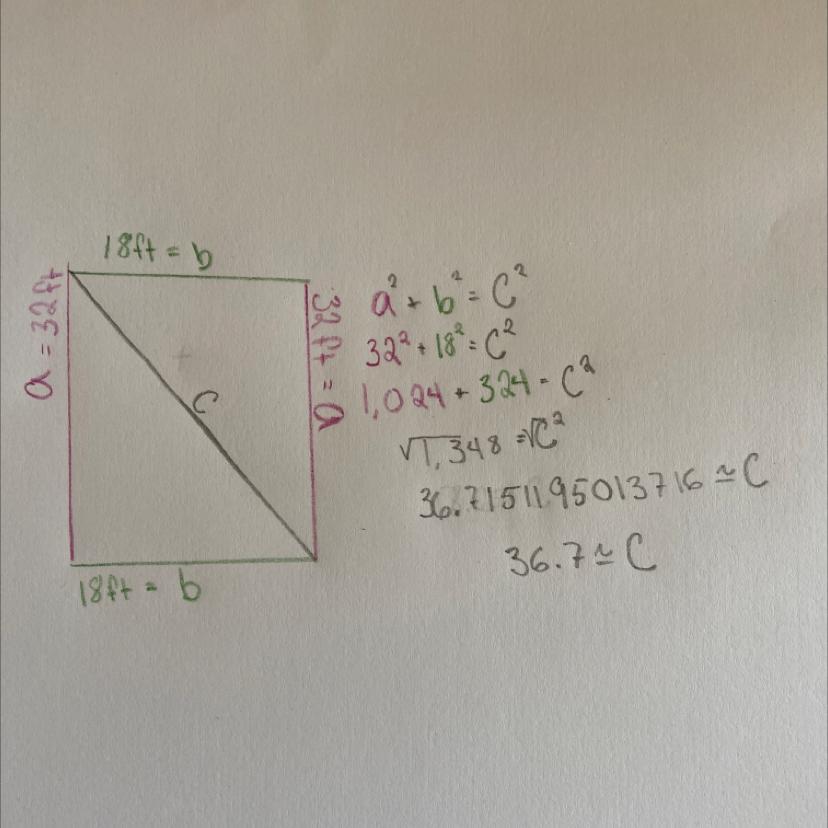 18ft = b
a = 32ft
32ft = a
C
18ft = b
a² + b² = C²
32² + 18² = C²
1,024 + 324 = C²
√1,348 = √C²
36.7151195013716 ≃ C
36.7 ≃ C